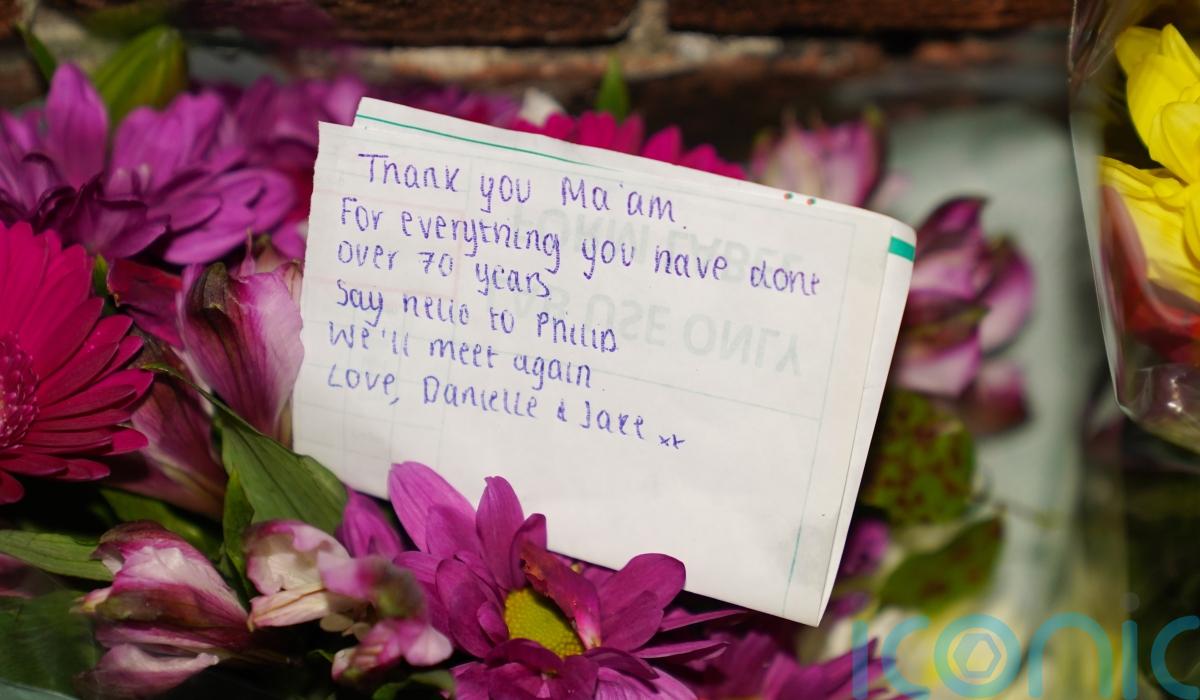 Thank you Ma'am.
For everything you have done
over 70 years
Say hello to Philip
We'll meet again.
Love, Danielle & Jake xx
FORM LABEL
USE ONLY
iconic